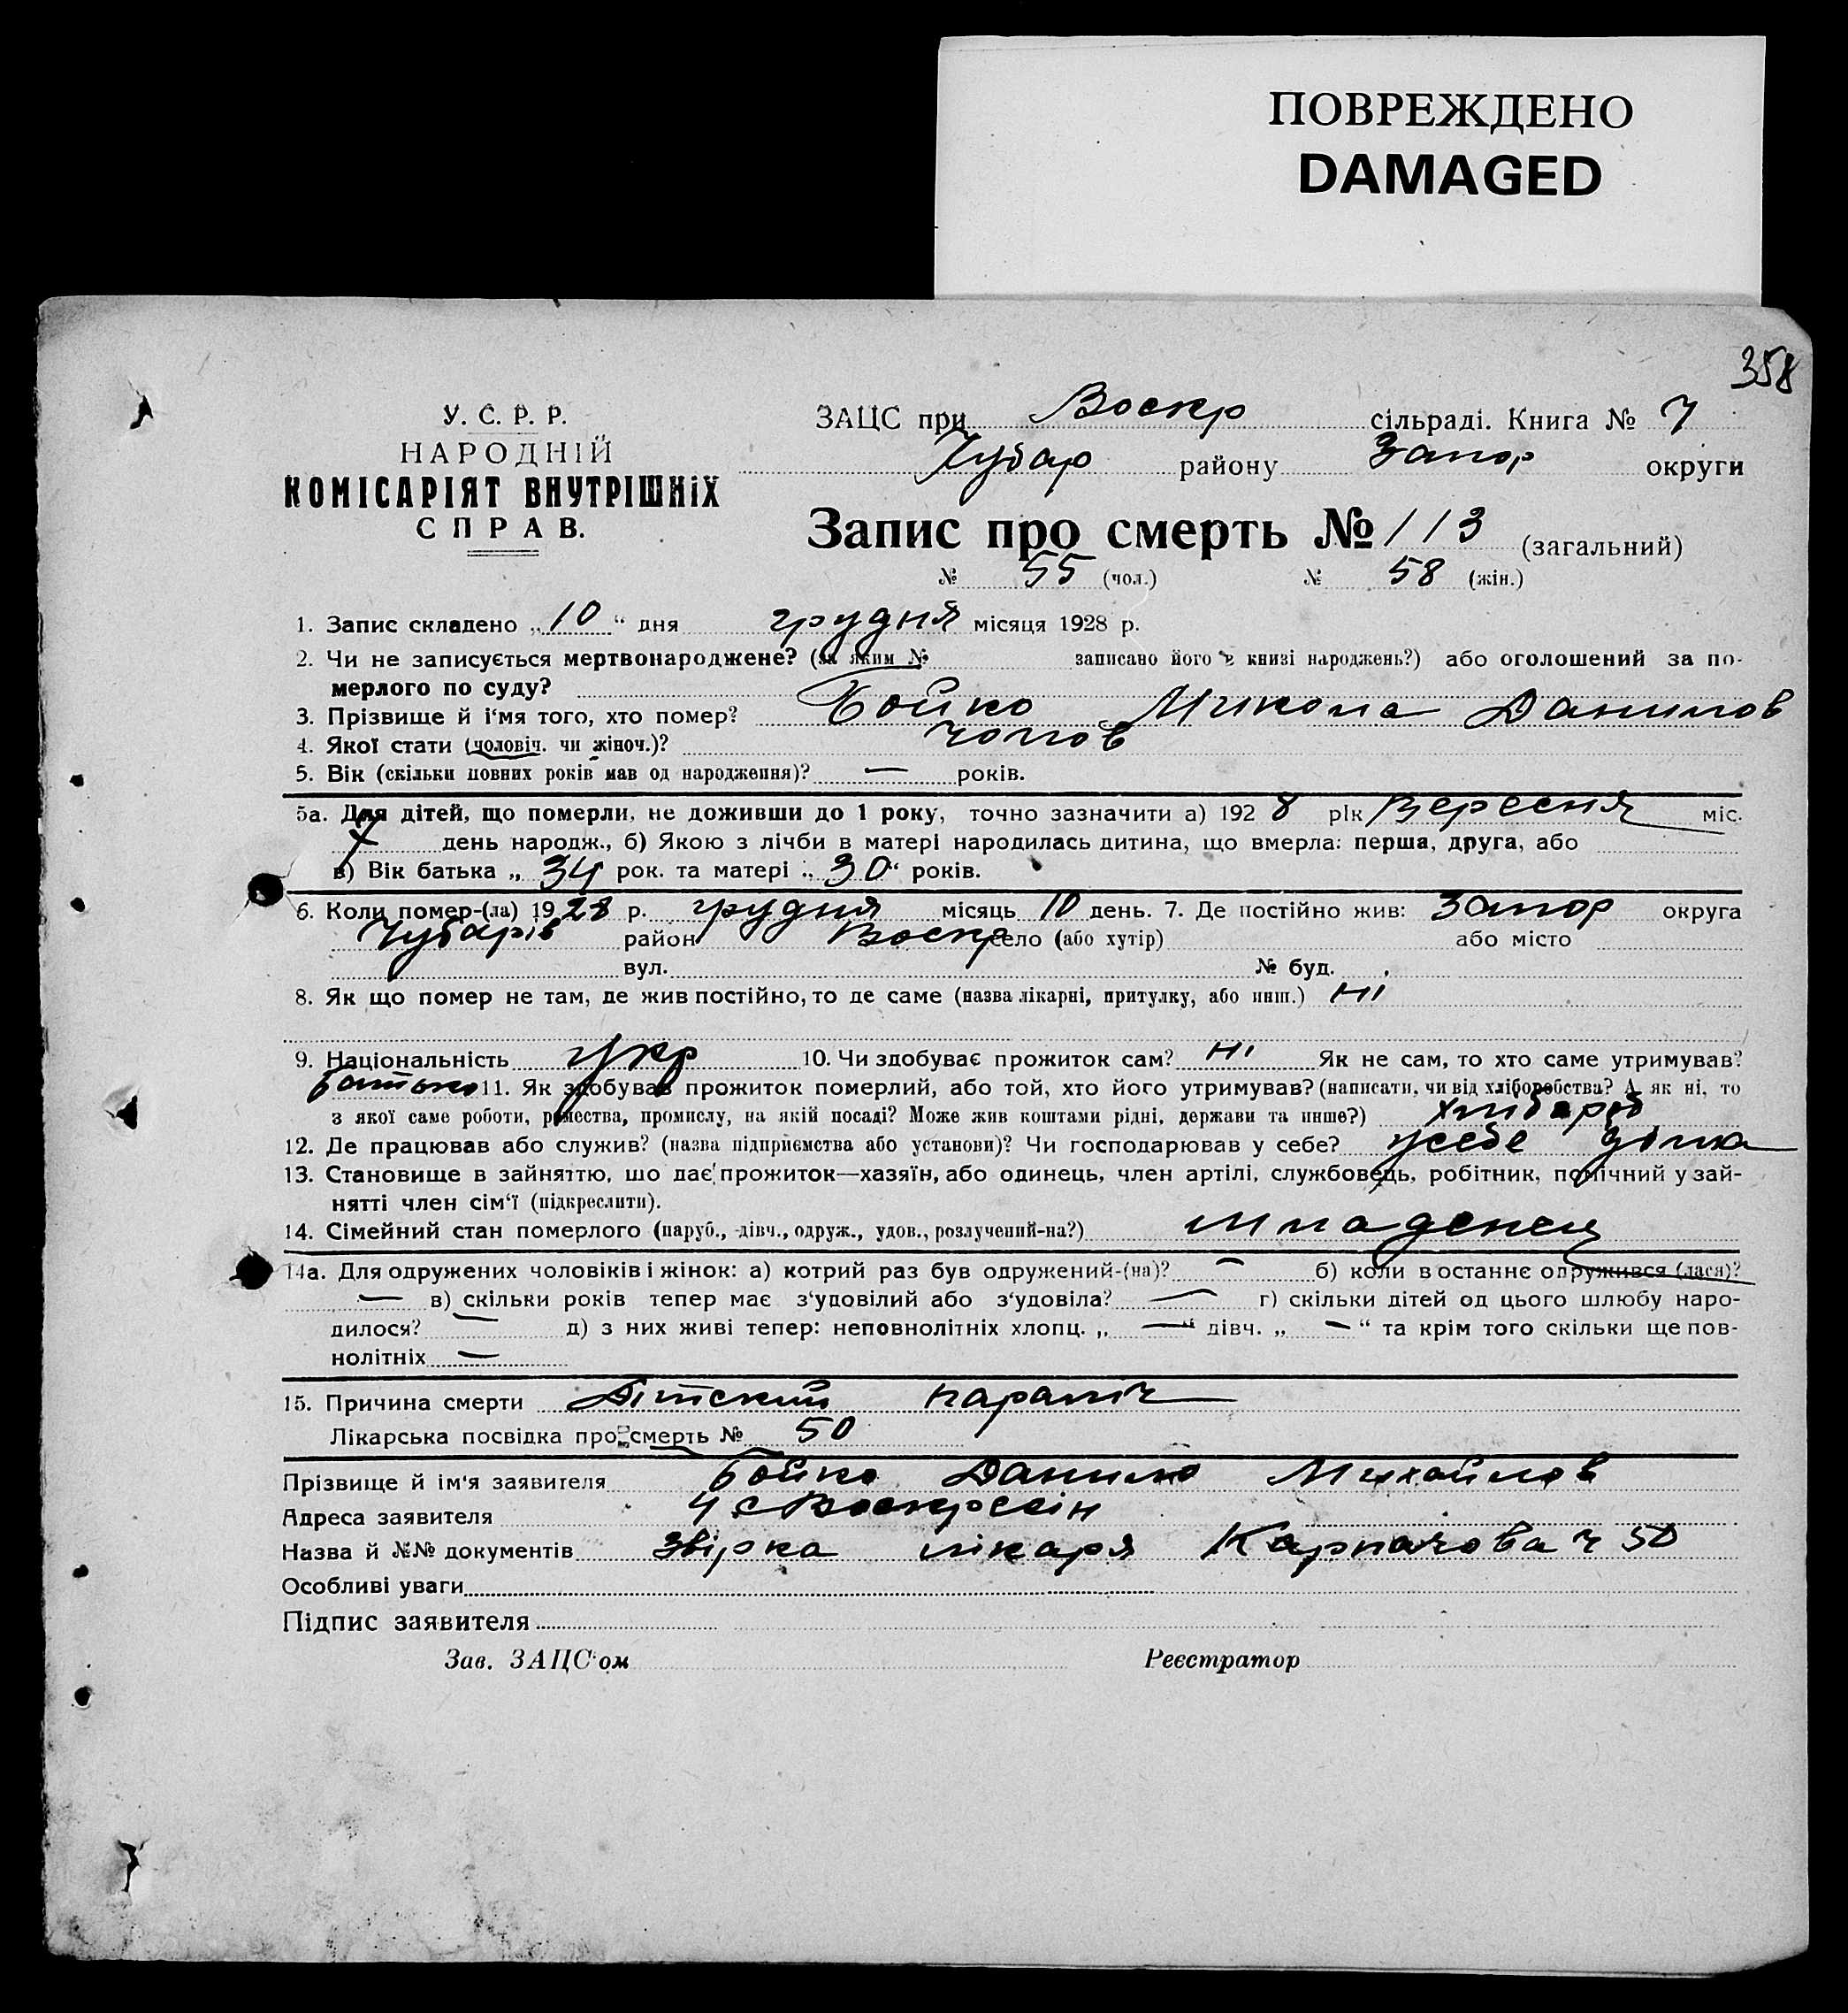 ПОВРЕЖДЕНО
DAMAGED
358
У. С. Р. Р.
НАРОДНІЙ
КОМІСАРІЯТ ВНУТРІШНІХ
СПРАВ.
ЗАЦС при Воскр сільраді. Книга № 7
Чубар району Запор округи
Запис про смерть № 113 (загальний)
№ 55 (чол.) № 58 (жін.)
1. Запис складено „10“ дня грудня місяця 1928 р.
2. Чи не записується мертвонароджене? (за яким № записано його в книзі народжень?) або оголошений за по-
мерлого по суду?
3. Прізвище й і'мя того, хто помер? Бойко Микола Данилов
4. Якої стати (чоловіч. чи жіноч.)? чолов
5. Вік (скільки повних років мав од народження)? — років.
5а. Для дітей, що померли, не доживши до 1 року, точно зазначити а) 1928 рік Вересня міс.
7 день народж., б) Якою з лічби в матері народилась дитина, що вмерла: перша, друга, або
в) Вік батька „34 рок. та матері „30“ років.
6. Коли помер-(ла) 1928 р. грудня місяць 10 день. 7. Де постійно жив: Запор округа
Чубарів район Воскр село (або хутір) або місто
вул. № буд.
8. Як що помер не там, де жив постійно, то де саме (назва лікарні, притулку, або инш.) ні
9. Національність укр 10. Чи здобуває прожиток сам? ні Як не сам, то хто саме утримував?
батько 11. Як здобував прожиток померлий, або той, хто його утримував? (написати, чи від хліборобства? А як ні, то
з якої саме роботи, ремества, промислу, на якій посаді? Може жив коштами рідні, держави та инше?) хлибороб
12. Де працював або служив? (назва підприємства або установи)? Чи господарював у себе? усебе дома
13. Становище в зайняттю, що дає прожиток—хазяїн, або одинець, член артілі, службовець, робітник, помічний у зай-
нятті член сім'ї (підкреслити).
14. Сімейний стан померлого (паруб., дівч., одруж., удов., розлучений-на?) младенец
14а. Для одружених чоловіків і жінок: а) котрий раз був одружений-(на)? — б) коли в останнє одружився (лася)?
— в) скільки років тепер має з'удовілий або з'удовіла? — г) скільки дітей од цього шлюбу наро-
дилося? — д) з них живі тепер: неповнолітніх хлопц. „—“ дівч. „—“ та крім того скільки ще пов-
нолітніх —
15. Причина смерти Дітский параліч
Лікарська посвідка про смерть № 50
Прізвище й ім'я заявителя Бойко Данило Михайлов
Адреса заявителя с Воскресін
Назва й №№ документів звірка лікаря Карпачова ч 50
Особливі уваги
Підпис заявителя
Зав. ЗАЦС'ом Реєстратор